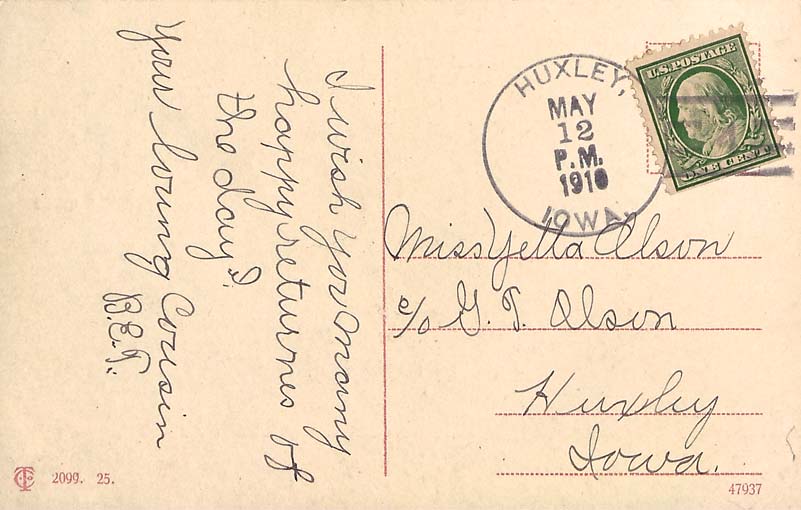 I wish you many
happy returnes of
the day".
Your loving Cousin
B.E.T.
HUXLEY,
MAY
12
P.M.
1910
IOWA.
U.S. POSTAGE
ONE CENT
Miss Yetta Olson
c/o G. T. Olson
Huxley
Iowa.
2099. 25.
47937